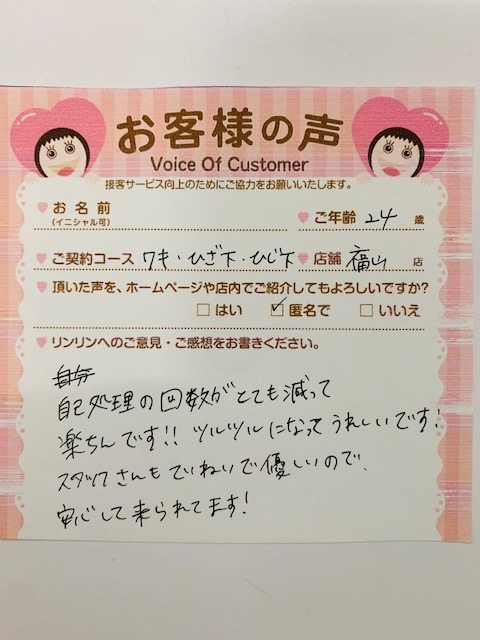 お客様の声
Voice Of Customer
接客サービス向上のためにご協力をお願いいたします。
お名前
(イニシャル可)
ご年齢 24 歳
ご契約コース ワキ・ひざ下・ひじ下 店舗 福山 店
頂いた声を、ホームページや店内でご紹介してもよろしいですか?
□ はい ☑ 匿名で □ いいえ
リンリンへのご意見・ご感想をお書きください。
自分
自己処理の回数がとても減って
楽ちんです!! ツルツルになってうれしいです!
スタッフさんもていねいで優しいので、
安心して来られてます!